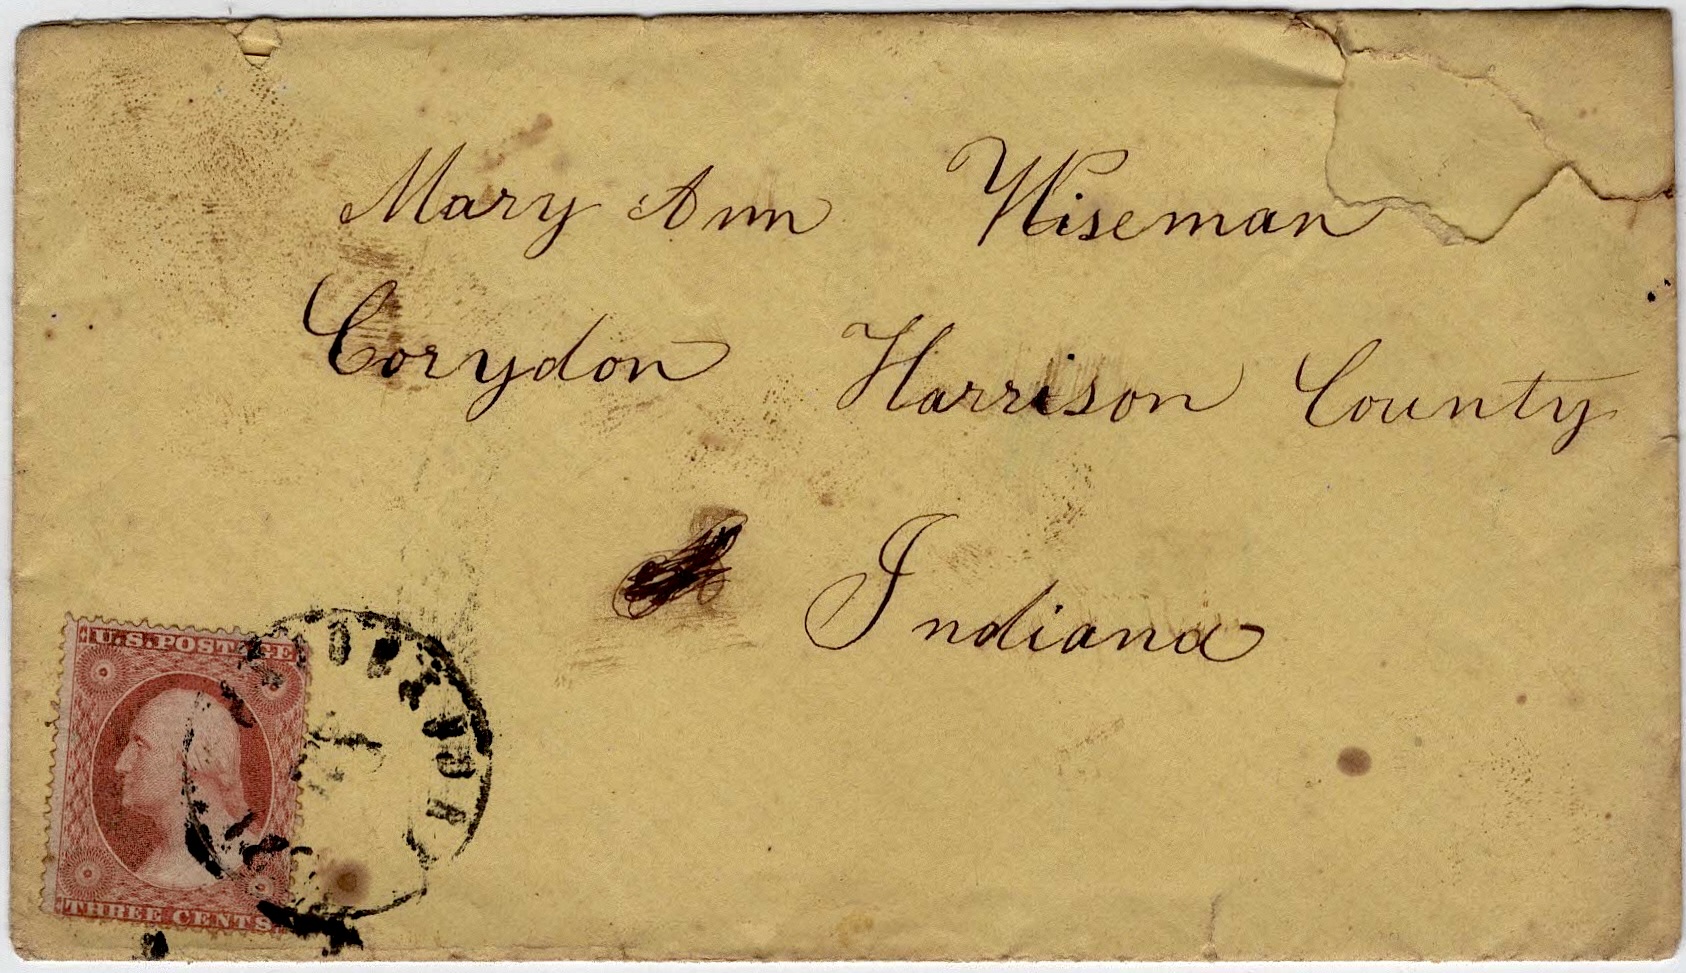 Mary Ann Wiseman
Corydon Harrison County
Indiana
U.S. POSTAGE
THREE CENTS